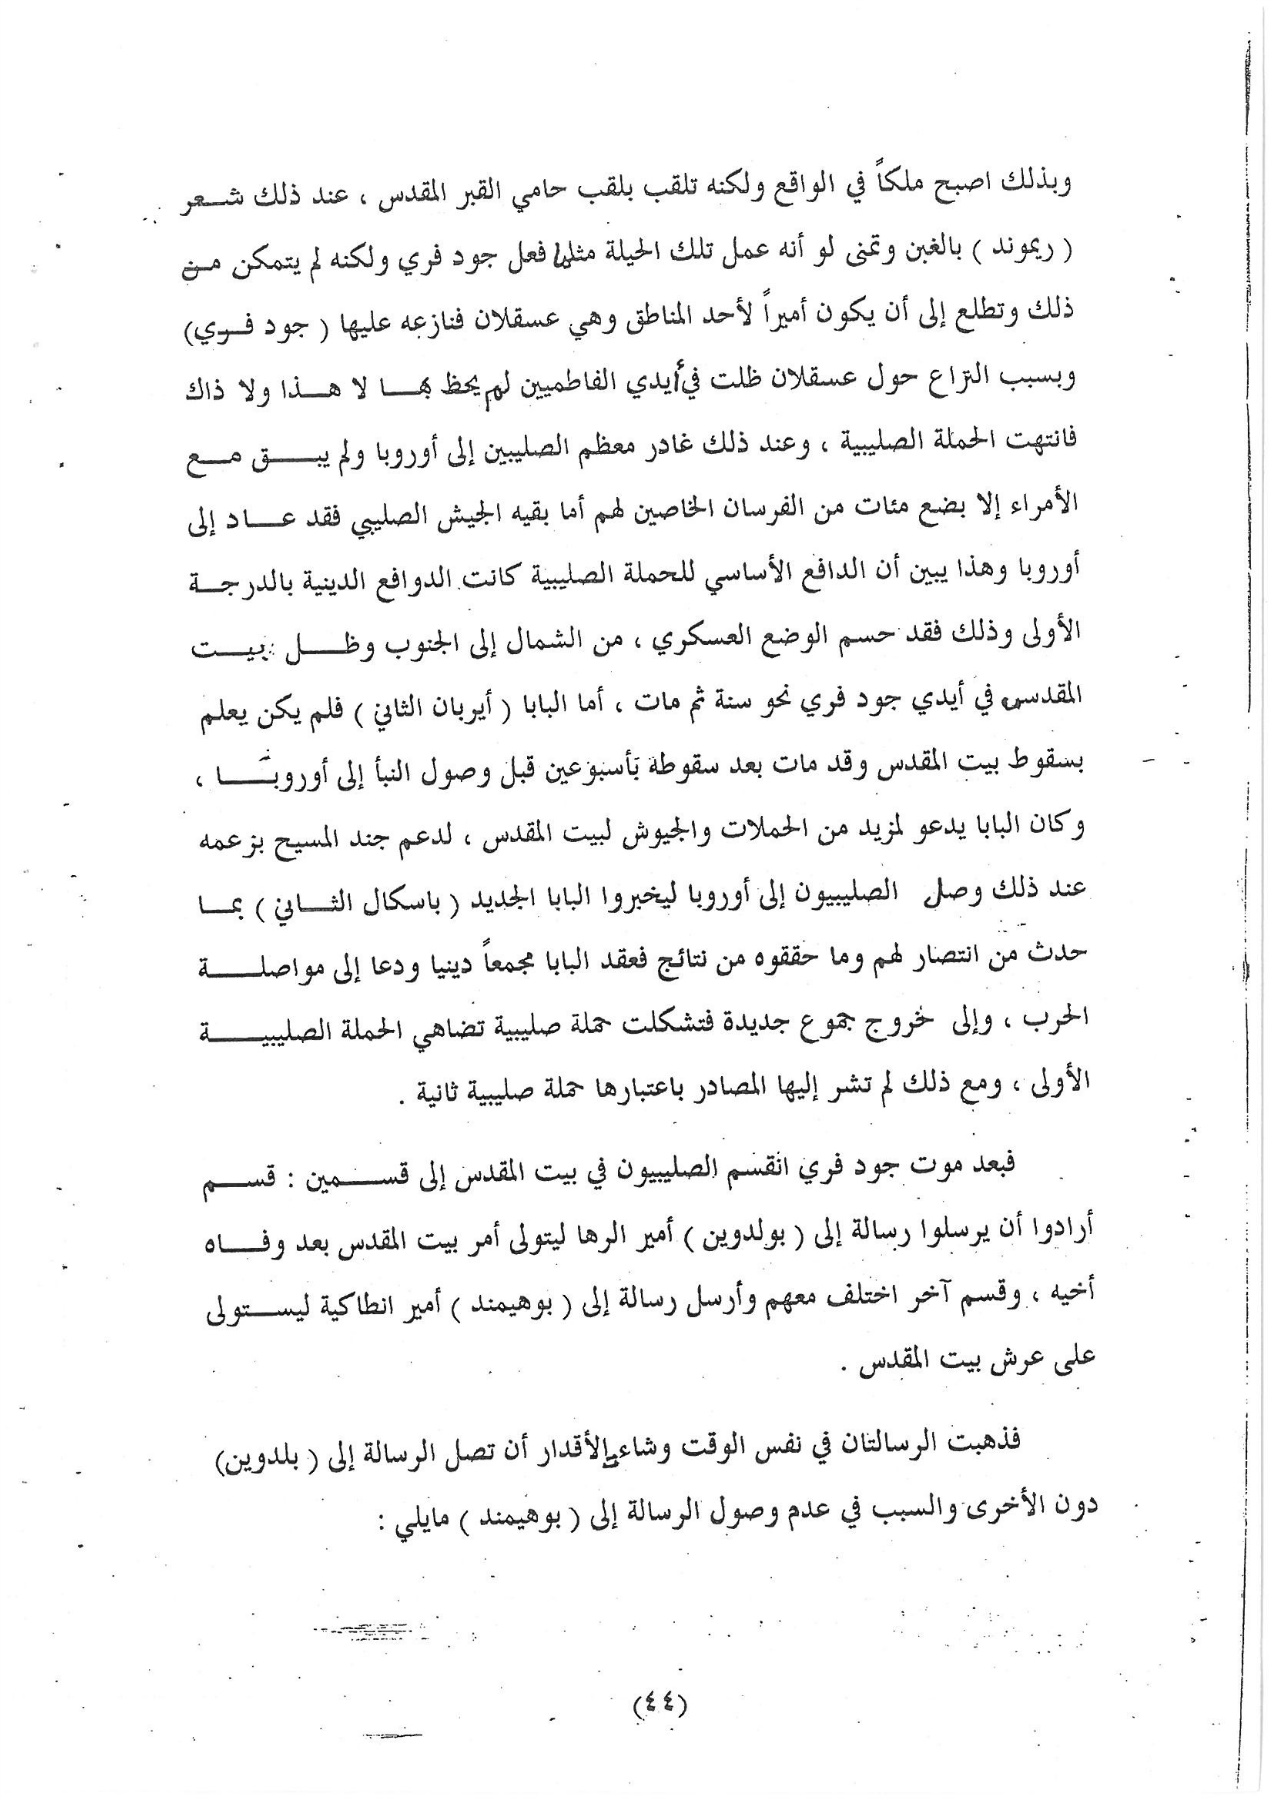 وبذلك اصبح ملكاً في الواقع ولكنه تلقب بلقب حامي القبر المقدس ، عند ذلك شعر
( ريموند ) بالغبن وتمنى لو أنه عمل تلك الحيلة مثلما فعل جود فري ولكنه لم يتمكن من
ذلك وتطلع إلى أن يكون أميراً لأحد المناطق وهي عسقلان فنازعه عليها ( جود فري)
وبسبب النزاع حول عسقلان ظلت في أيدي الفاطميين لم يحظ بها لا هذا ولا ذاك
فانتهت الحملة الصليبية ، وعند ذلك غادر معظم الصليبين إلى أوروبا ولم يبق مع
الأمراء إلا بضع مئات من الفرسان الخاصين لهم أما بقيه الجيش الصليبي فقد عاد إلى
أوروبا وهذا يبين أن الدافع الأساسي للحملة الصليبية كانت الدوافع الدينية بالدرجة
الأولى وذلك فقد حسم الوضع العسكري ، من الشمال إلى الجنوب وظل بيت
المقدس في أيدي جود فري نحو سنة ثم مات ، أما البابا ( أيربان الثاني ) فلم يكن يعلم
بسقوط بيت المقدس وقد مات بعد سقوطه بأسبوعين قبل وصول النبأ إلى أوروبا ،
وكان البابا يدعو لمزيد من الحملات والجيوش لبيت المقدس ، لدعم جند المسيح بزعمه
عند ذلك وصل الصليبيون إلى أوروبا ليخبروا البابا الجديد ( باسكال الثاني ) بما
حدث من انتصار لهم وما حققوه من نتائج فعقد البابا مجمعاً دينيا ودعا إلى مواصلة
الحرب ، وإلى خروج جموع جديدة فتشكلت حملة صليبية تضاهي الحملة الصليبية
الأولى ، ومع ذلك لم تشر إليها المصادر باعتبارها حملة صليبية ثانية .
فبعد موت جود فري انقسم الصليبيون في بيت المقدس إلى قسمين : قسم
أرادوا أن يرسلوا رسالة إلى ( بولدوين ) أمير الرها ليتولى أمر بيت المقدس بعد وفاه
أخيه ، وقسم آخر اختلف معهم وأرسل رسالة إلى ( بوهيمند ) أمير انطاكية ليستولى
على عرش بيت المقدس .
فذهبت الرسالتان في نفس الوقت وشاء الأقدار أن تصل الرسالة إلى ( بلدوين)
دون الأخرى والسبب في عدم وصول الرسالة إلى ( بوهيمند ) مايلي :
(٤٤)